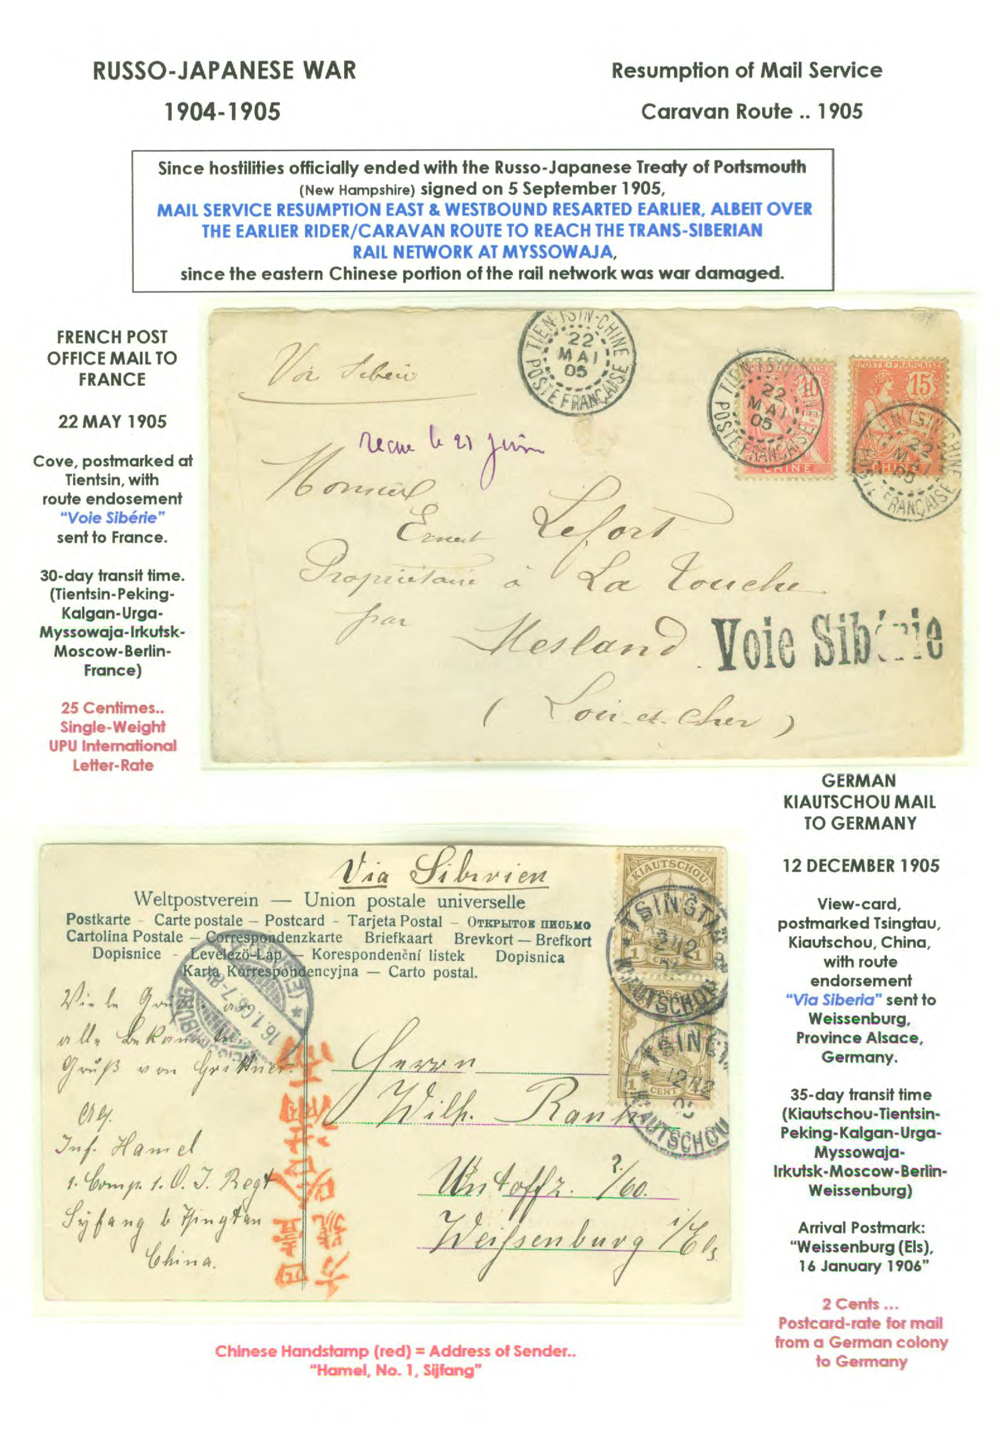 RUSSO-JAPANESE WAR
1904-1905
Resumption of Mail Service
Caravan Route .. 1905
Since hostilities officially ended with the Russo-Japanese Treaty of Portsmouth
(New Hampshire) signed on 5 September 1905,
MAIL SERVICE RESUMPTION EAST & WESTBOUND RESARTED EARLIER, ALBEIT OVER
THE EARLIER RIDER/CARAVAN ROUTE TO REACH THE TRANS-SIBERIAN
RAIL NETWORK AT MYSSOWAJA,
since the eastern Chinese portion of the rail network was war damaged.
FRENCH POST
OFFICE MAIL TO
FRANCE
22 MAY 1905
Cove, postmarked at
Tientsin, with
route endosement
"Voie Sibérie"
sent to France.
30-day transit time.
(Tientsin-Peking-
Kalgan-Urga-
Myssowaja-Irkutsk-
Moscow-Berlin-
France)
25 Centimes..
Single-Weight
UPU International
Letter-Rate
TIEN-TSIN-CHINE
22
MAI
05
POSTE FRANÇAISE
10
CHINE
15
TIEN-TSIN-CHINE
22
MAI
05
POSTE FRANÇAISE
reçue le 21 juin
Monsieur
Ernest Lefort
Propriétaire à La Touche
par Mesland
Voie Sibérie
(Loir-et-Cher)
GERMAN
KIAUTSCHOU MAIL
TO GERMANY
12 DECEMBER 1905
View-card,
postmarked Tsingtau,
Kiautschou, China,
with route
endorsement
"Via Siberia" sent to
Weissenburg,
Province Alsace,
Germany.
35-day transit time
(Kiautschou-Tientsin-
Peking-Kalgan-Urga-
Myssowaja-
Irkutsk-Moscow-Berlin-
Weissenburg)
Arrival Postmark:
"Weissenburg (Els),
16 January 1906"
2 Cents ...
Postcard-rate for mail
from a German colony
to Germany
Via Siberien
Weltpostverein — Union postale universelle
Postkarte - Carte postale — Postcard - Tarjeta Postal - Открытое письмо
Cartolina Postale — Correspondenzkarte Briefkaart Brevkort — Brefkort
Dopisnice - Levelező-Lap — Korespondenční listek Dopisnica
Karta Korrespondencyjna — Carto postal.
KIAUTSCHOU
1 CENT
TSINGTAU
KIAUTSCHOU
16.1.06.7-8
Viele
alle
Gruß von
Inf. Hamel
1. Comp. 1. O. J. Regt
Syfang b Tsingtau
China.
Herrn
Wilh.
Untoffz. ?/60.
Weissenburg i/Els
Chinese Handstamp (red) = Address of Sender..
"Hamel, No. 1, Sijfang"